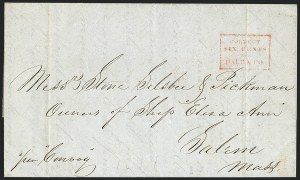 COLLECT
SIX CENTS
Messrs Stone Silsbee & Pickman
Owners of Ship Eliza Ann
Salem
Mass
per "Convoy"